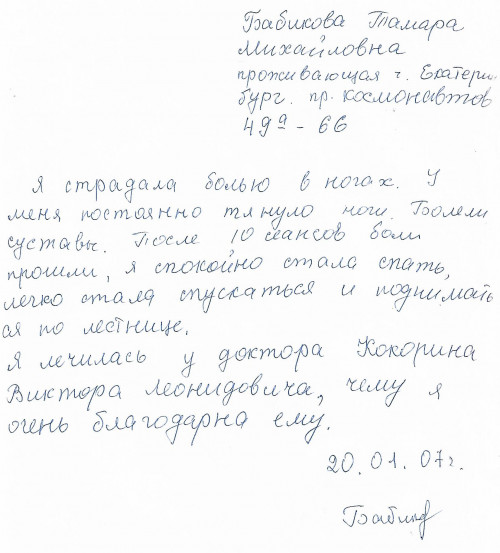 Бабикова Тамара
Михайловна
проживающая г. Екатерин-
бург. пр. Космонавтов
49а - 66
Я страдала болью в ногах. У
меня постоянно тянуло ноги. Болели
суставы. После 10 сеансов боли
прошли, я спокойно стала спать,
легко стала спускаться и поднимать
ся по лестнице.
Я лечилась у доктора Кокорина
Виктора Леонидовича, чему я
очень благодарна ему.
20.01.07г.